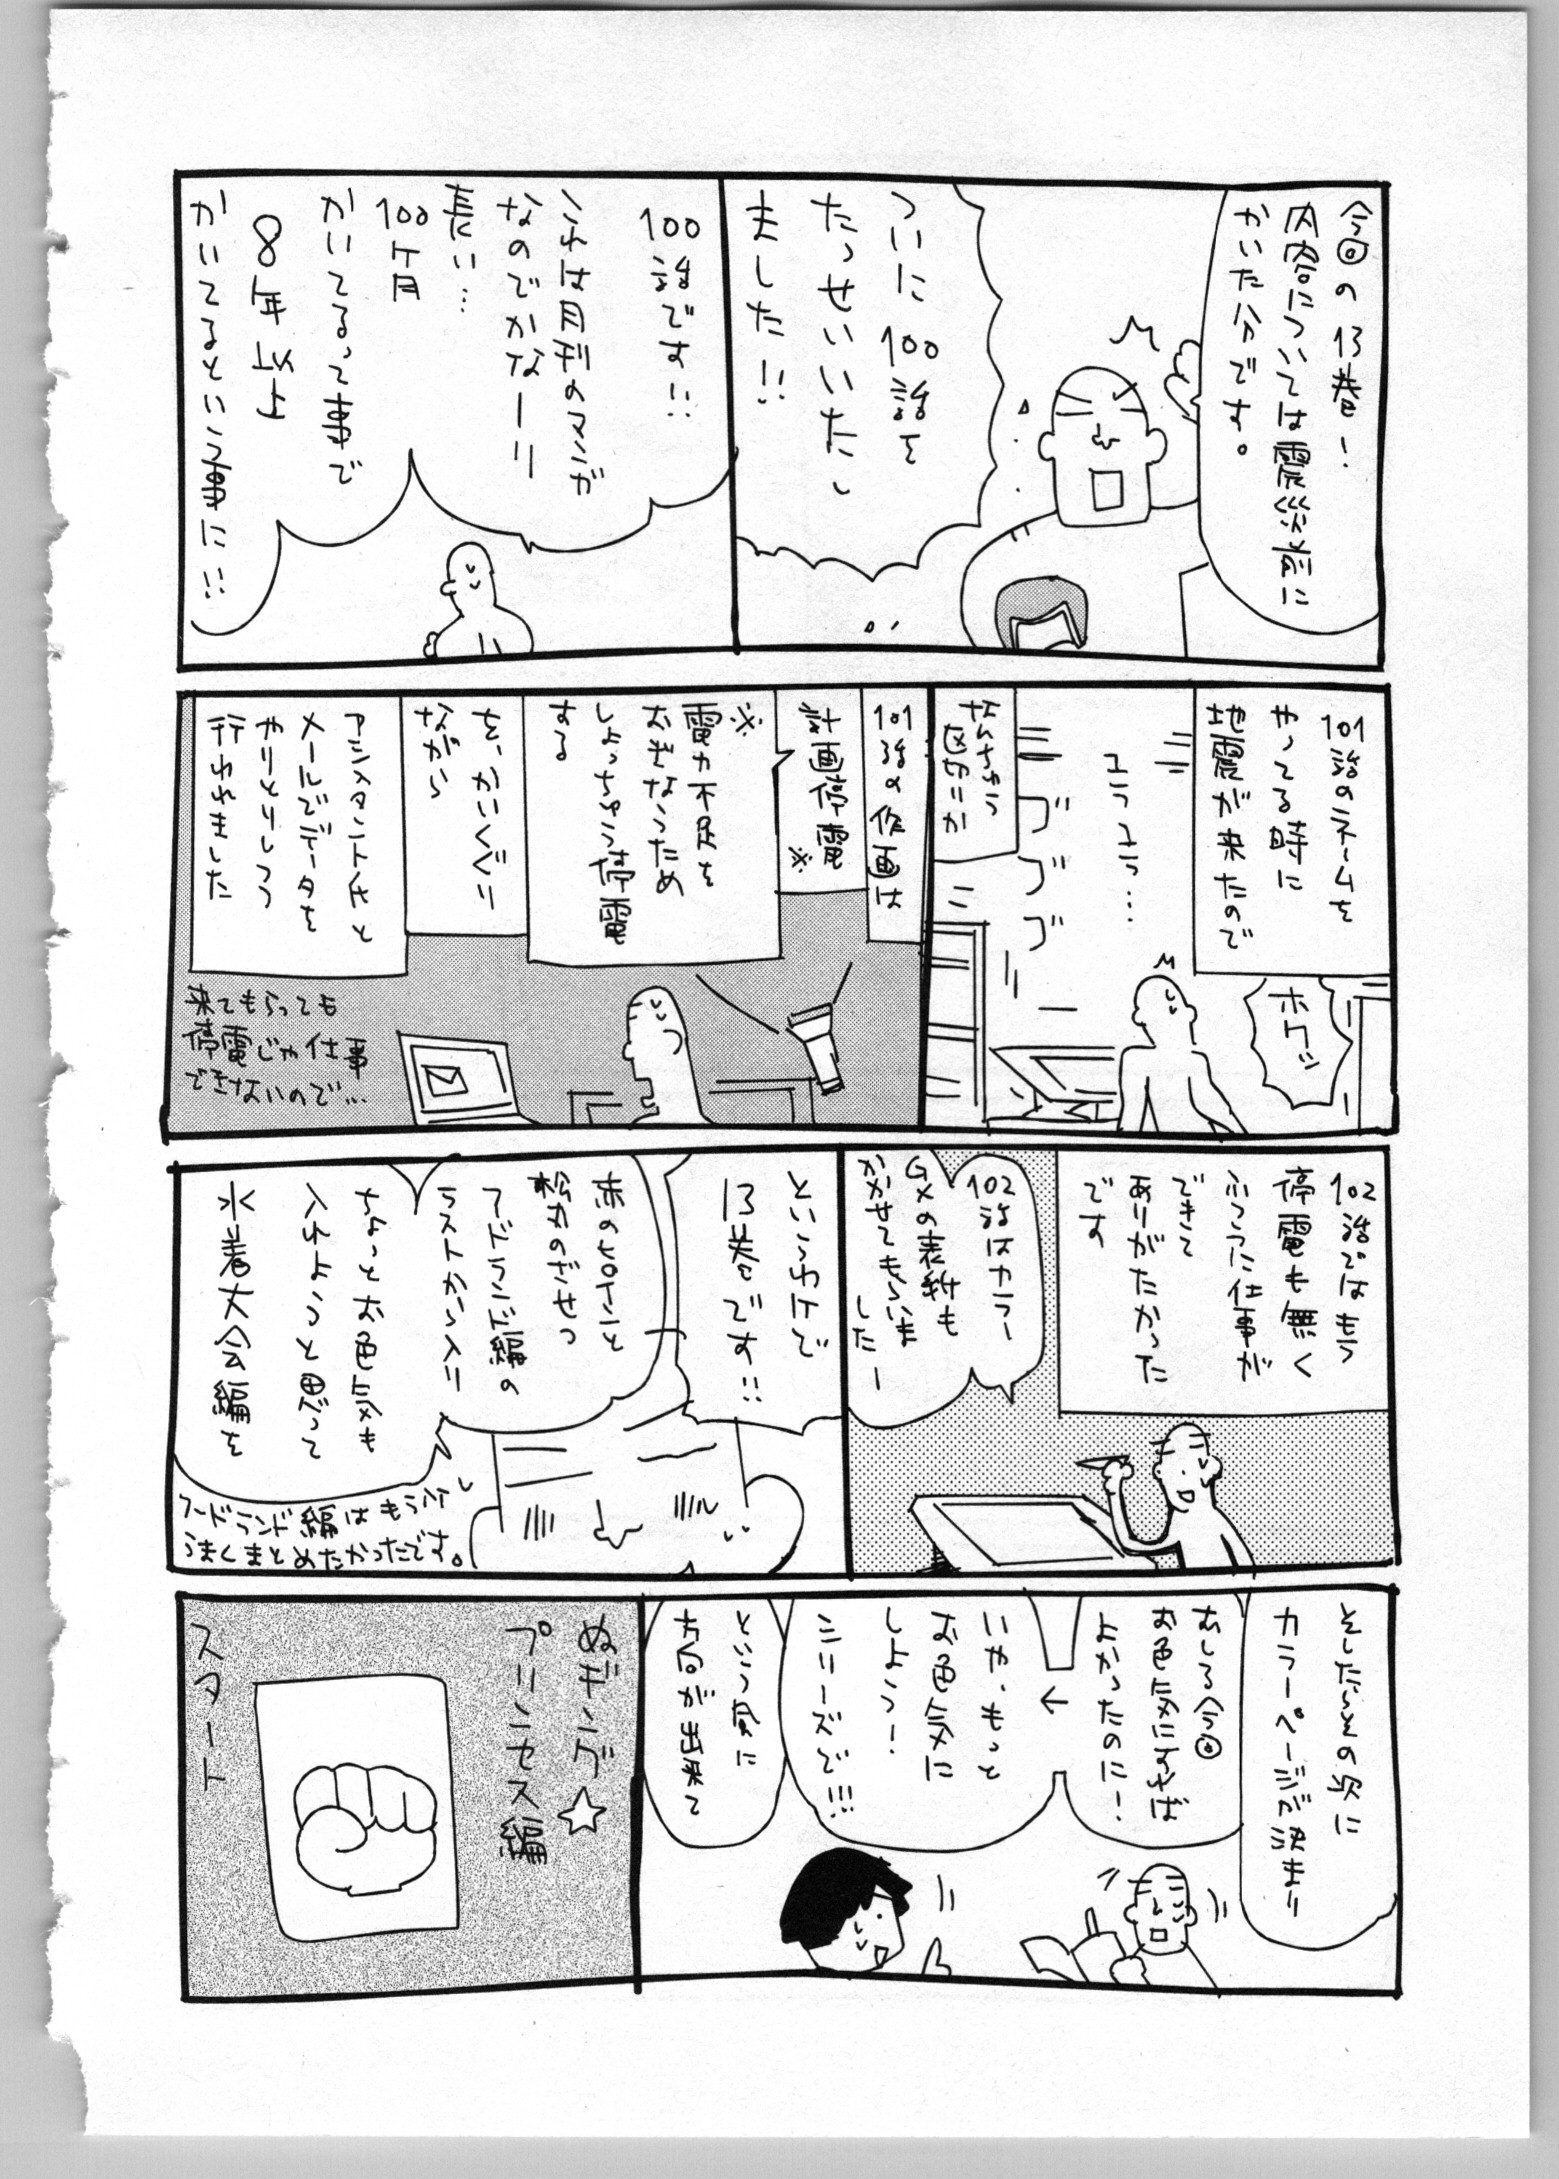 今回の13巻!
内容については震災前に
かいた分です。
ついに100話を
たっせいいたし
ました!!
100話です!!
これは月刊のマンガ
なのでかなーり
長い…
100ヶ月
かいてるって事で
8年以上
かいてるという事に!!
101話のネームを
やってる時に
地震が来たので
ホワン
ユラユラ…
ゴゴゴゴ
なんちゅう
区切りか
101話の作画は
計画停電※
※
電力不足を
おぎなうため
しょっちゅう停電
する
を、かいくぐり
ながら
アシスタント氏と
メールでデータを
やりとりしつつ
行われました
来てもらっても
停電じゃ仕事
できないので…
102話ではもう
停電も無く
ふつうに仕事が
できて
ありがたかった
です
102話はカラー
GXの表紙も
かかせてもらいま
したー
というわけで
13巻です!!
フードランド編の
ラストから入り
ちょっとお色気も
入れようと思って
水着大会編を
フードランド編はもう少し
うまくまとめたかったです。
そしたらその次に
カラーページが決まり
むしろ今回
お色気にすれば
よかったのにー!
←
いや、もっと
お色気に
しよう!
シリーズで!!!
という風に
方向が出来て
ぬギング☆
プリンセス編
スタート